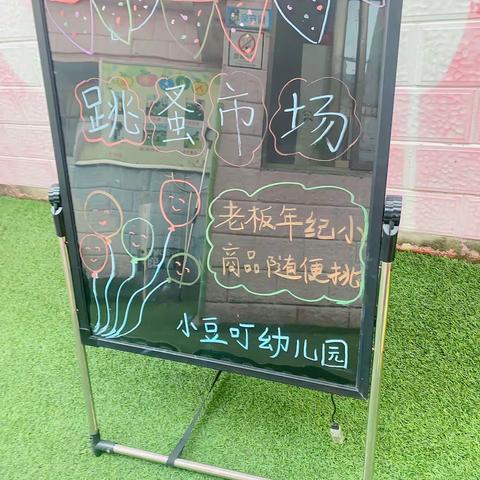 跳蚤市场
老板年纪小
商品随便挑
小豆叮幼儿园